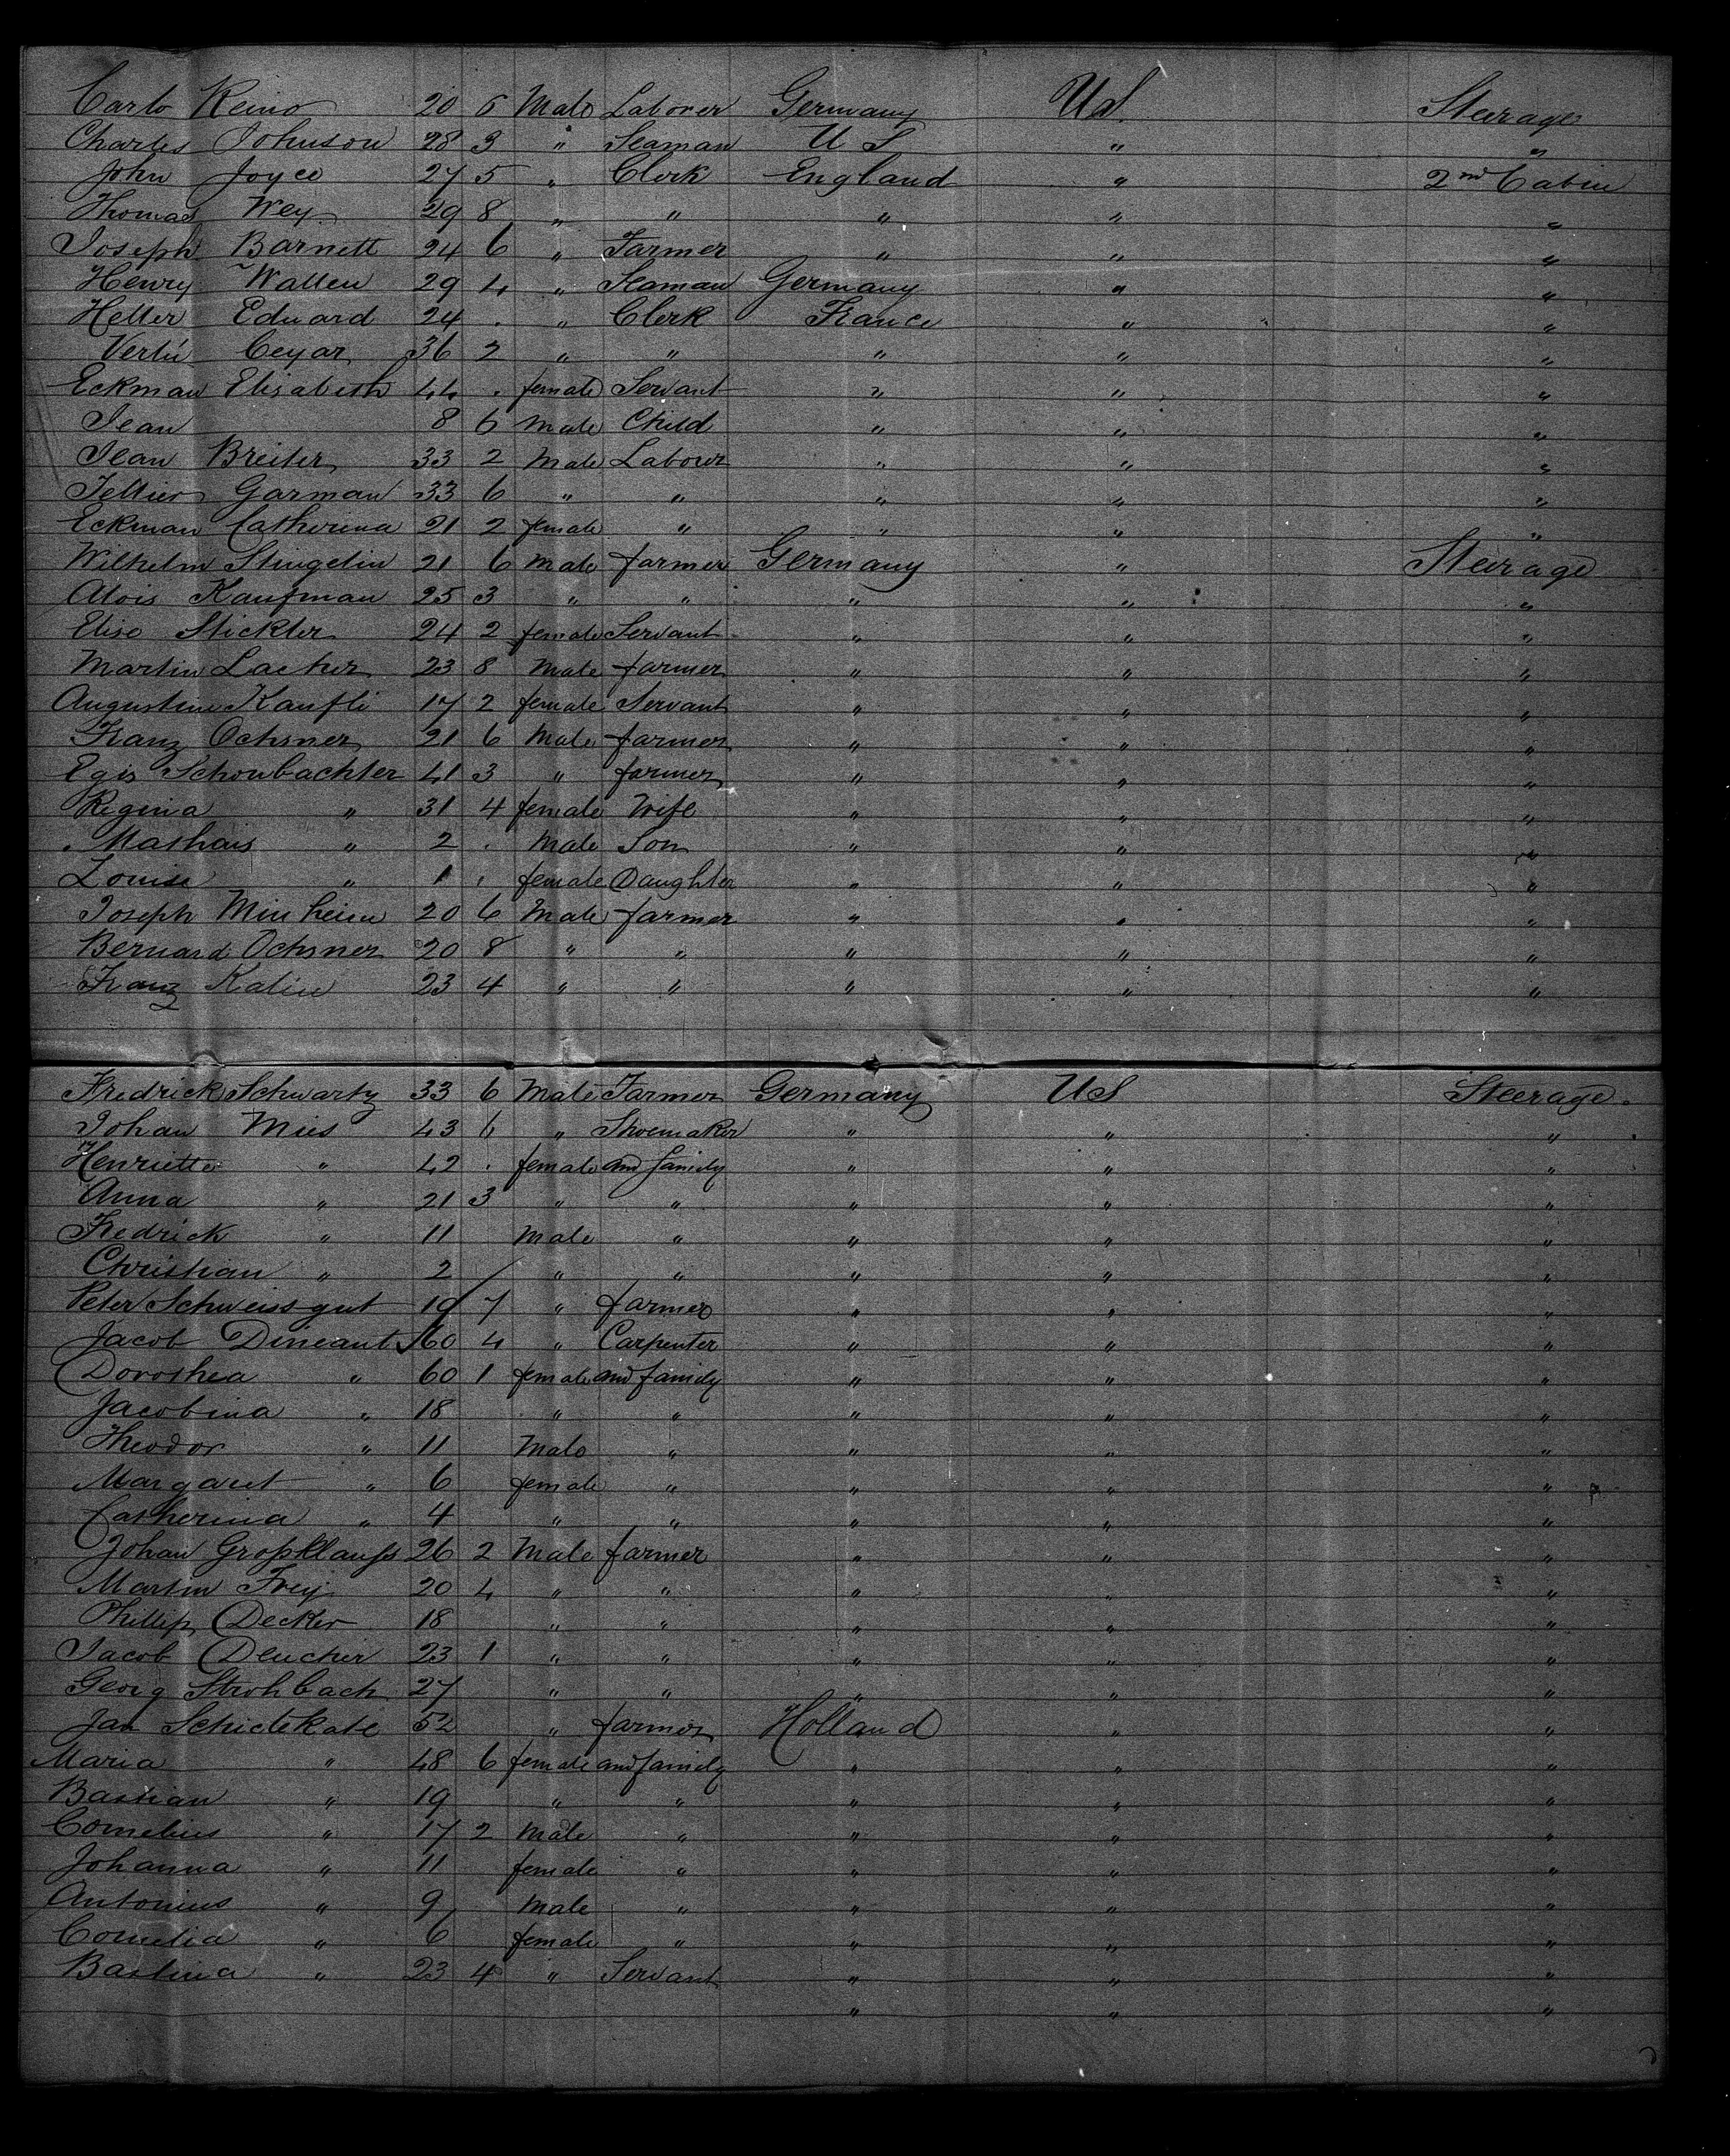 Carlo Reino 20 6 Male Laborer Germany US Steerage
Charles Johnson 28 3 " Seaman U S " "
John Joyce 27 5 " Clerk England " 2nd Cabin
Thomas Wey 29 8 " " " " "
Joseph Barnett 24 6 " Farmer " " "
Henry Wallen 29 4 " Seaman Germany " "
Heller Eduard 24 . " Clerk France " "
36 2 " " " " "
Eckman Elisabeth 44 . female Servant " " "
Jean 8 6 Male Child " " "
Jean Breiter 33 2 Male Labour " " "
Tellier Garman 33 6 " " " " "
Eckman Catherina 21 2 female " " " "
Wilhelm Stingelin 21 6 Male farmer Germany " Steerage
Alois Kaufman 25 3 " " " " "
Elise Stickler 24 2 female Servant " " "
Martin Lacher 23 8 Male farmer " " "
Augustine Kaufli 17 2 female Servant " " "
Franz Ochsner 21 6 Male farmer " " "
Egis Schonbachler 41 3 " farmer " " "
Regina " 31 4 female Wife " " "
Mathais " 2 . Male Son " " "
Louise " 1 . female Daughter " " "
Joseph 20 6 Male farmer " " "
Bernard Ochsner 20 8 " " " " "
Franz Kalin 23 4 " " " " "
Fredrick Schwartz 33 6 Male Farmer Germany US Steerage
Johan Mies 43 6 " Shoemaker " " "
Henriette " 42 . female and family " " "
Anna " 21 3 " " " " "
Fredrick " 11 Male " " " "
Christian " 2 " " " " "
Peter Schweissgut 19 7 " farmer " " "
Jacob Dineant 60 4 " Carpenter " " "
Dorothea " 60 1 female and family " " "
Jacobina " 18 " " " " "
Theodor " 11 Male " " " "
Margaret " 6 female " " " "
Catherina " 4 " " " " "
Johan Großklauß 26 2 Male farmer " " "
Martin Frey 20 4 " " " " "
Phillip Decker 18 " " " " "
Jacob Deucher 23 1 " " " " "
Georg Strohbach 27 " " " " "
Jan Schietekate 52 " farmer Holland " "
Maria " 48 6 female and family " " "
Bastian " 19 " " " " "
Cornelius " 17 2 Male " " " "
Johanna " 11 female " " " "
Antonius " 9 Male " " " "
Cornelia " 6 female " " " "
Bastina " 23 4 " Servant " " "
" " "